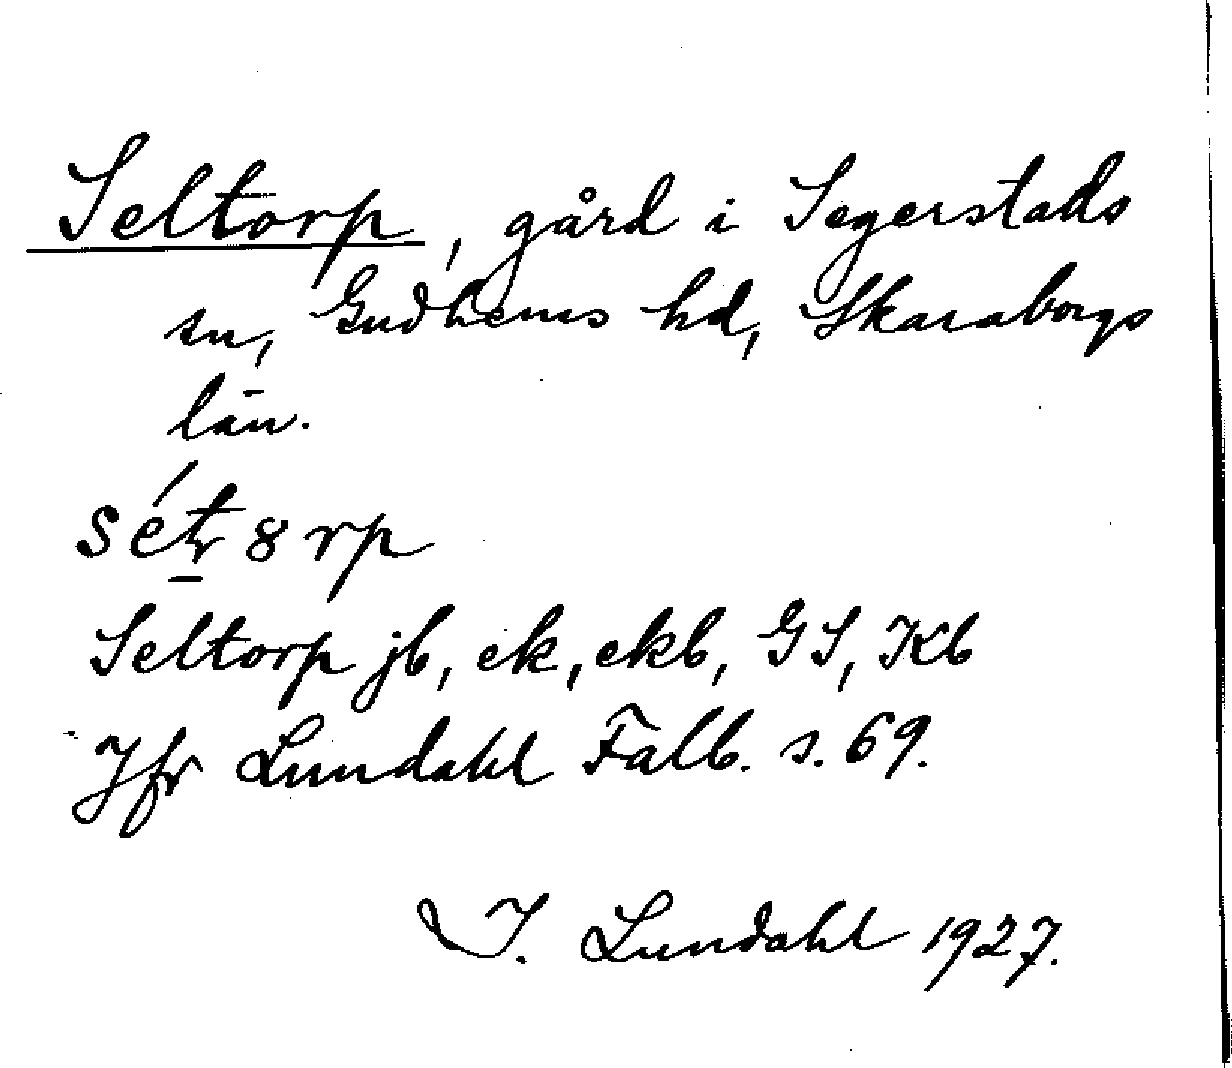 Seltorp, gård i Segerstads
sn, Gudhems hd, Skaraborgs
län.
Seltorp jb, ek, ekb, GS, Kb
Jfr Lundahl Falb. s. 69.
I. Lundahl 1927.